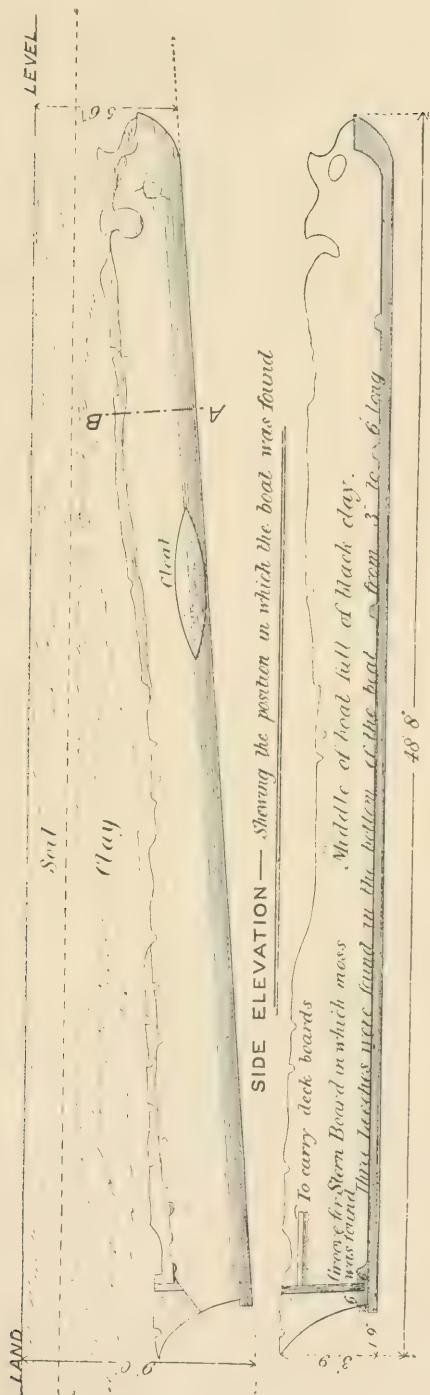 LAND LEVEL
Soil
Clay
B
Cleat
A
SIDE ELEVATION — Shewing the position in which the boat was found
To carry deck boards
Groove for Stern Board in which moss
was found
Middle of boat full of black clay.
Three were found in the bottom of the boat from 3" to 6" long
3' 9
48' 8"